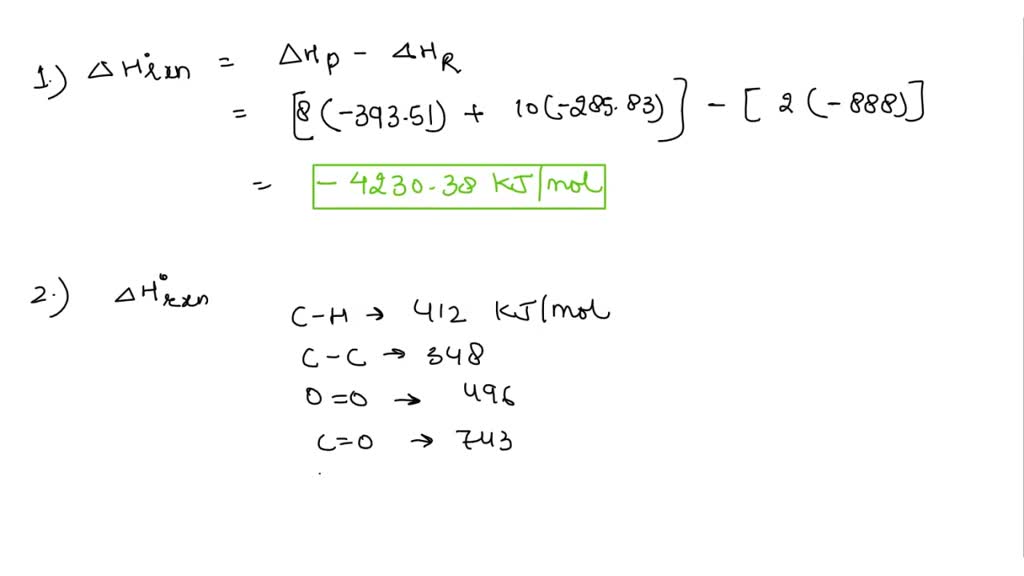 1.) ΔH°rxn = ΔHP - ΔHR
= [8(-393.51) + 10(-285.83)] - [2(-888)]
= -4230.38 KJ/mol
2.) ΔH°rxn
C-H → 412 KJ/mol
C-C → 348
O=O → 496
C=O → 743